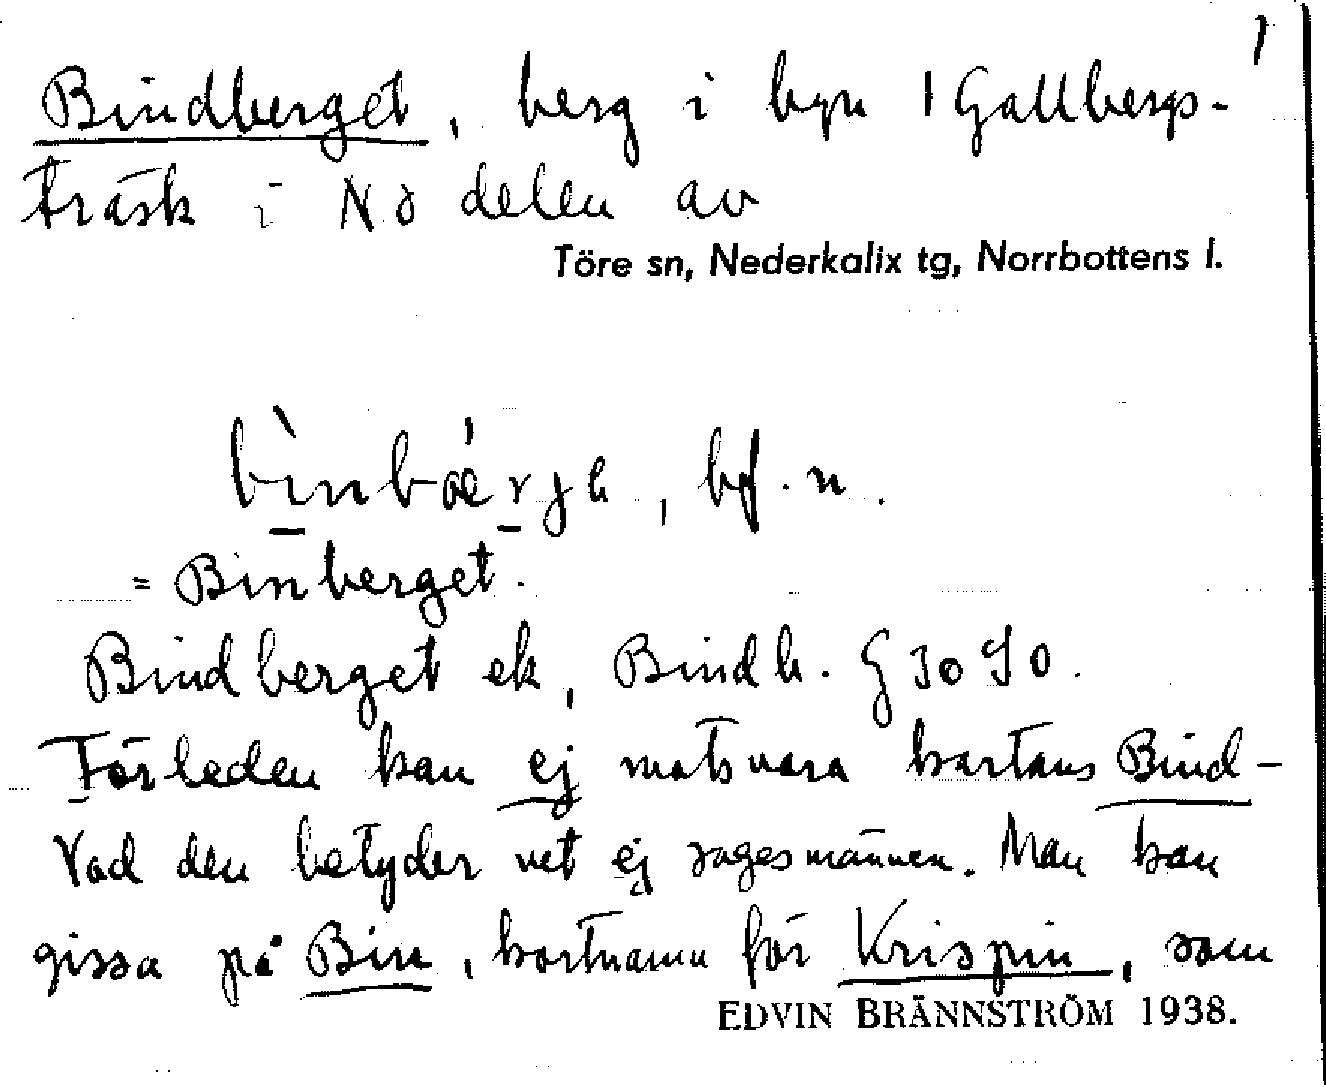 1
Bindberget, berg i byn 1 Gallbergs-
träsk i NÖ delen av
Töre sn, Nederkalix tg, Norrbottens l.
bìnbǽrje, bf. n.
= Binberget.
Bindberget ek, Bindb. G 3090.
Förleden kan ej motsvara kartans Bind-
Vad den betyder vet ej sagesmännen. Man kan
gissa på Bin, kortnamn för Krispin, som
EDVIN BRÄNNSTRÖM 1938.